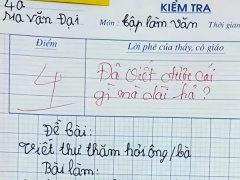 4a
KIỂM TRA
Ma Văn Đại
Môn: tập làm văn
Thời gian
Điểm
Lời phê của thầy, cô giáo
4
Đã viết được cái
gì mà dài hả?
Đề bài:
Viết thư thăm hỏi ông/bà
Bài làm: